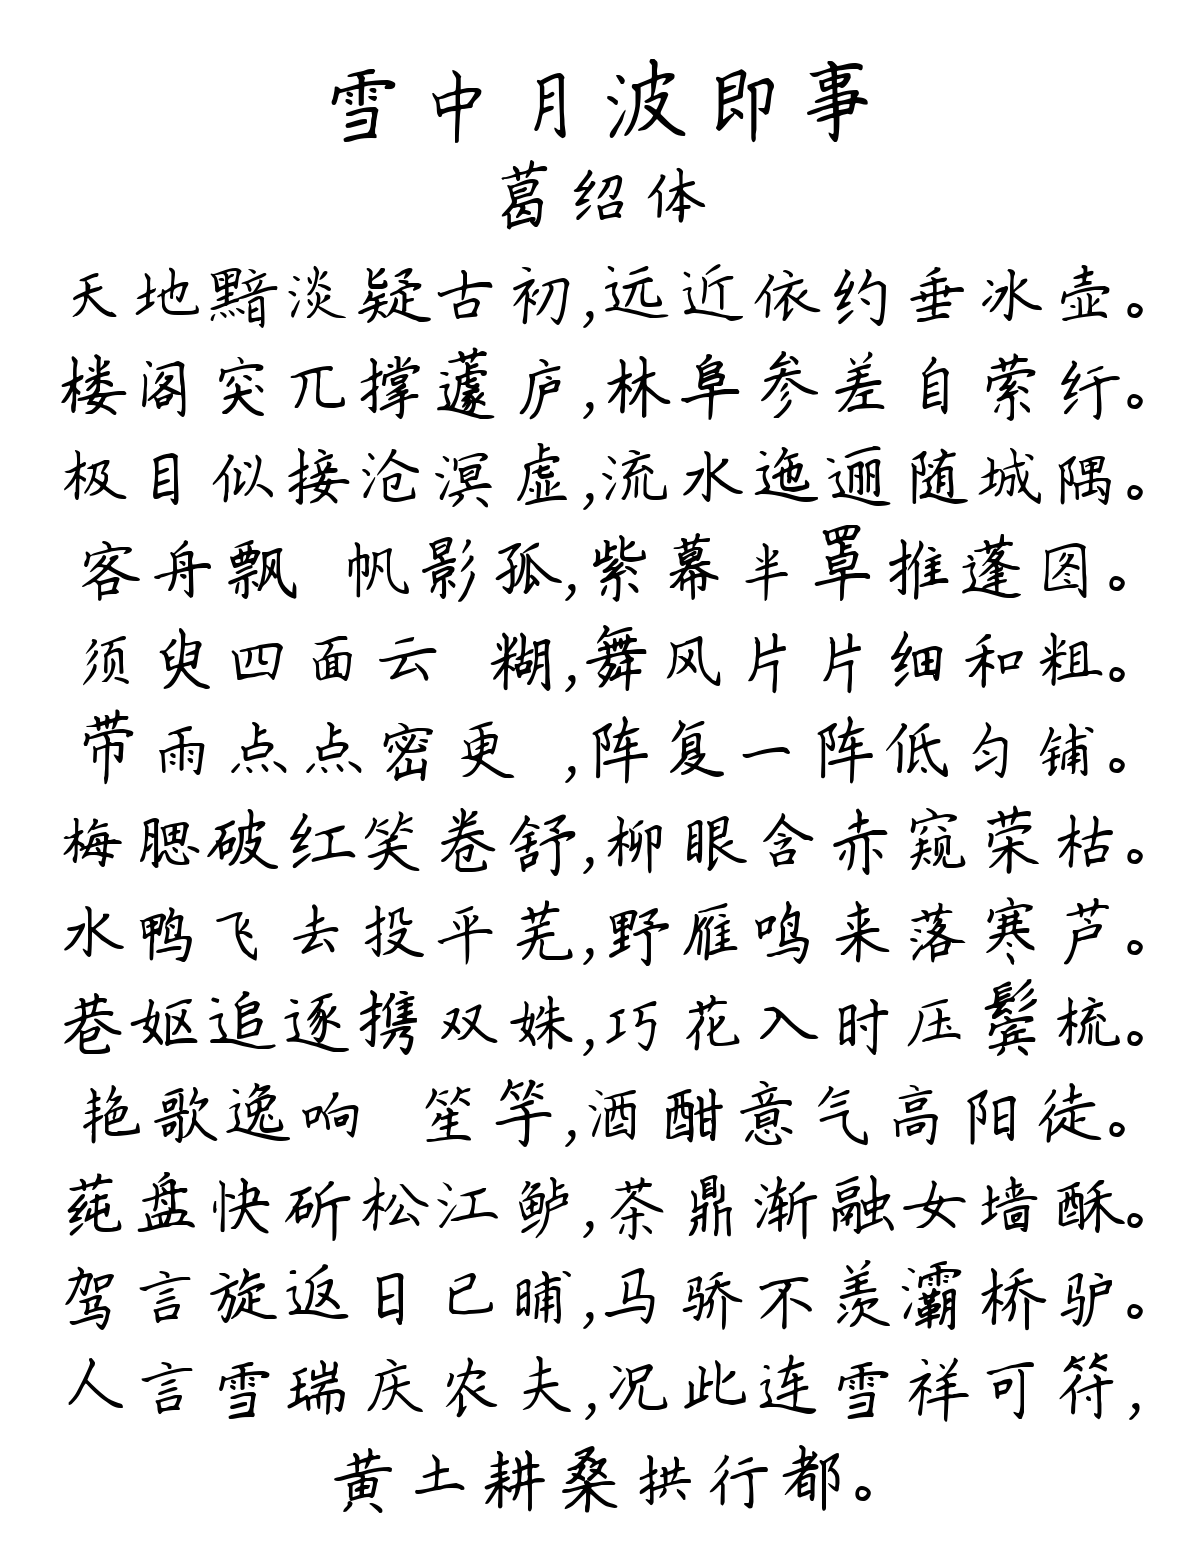 雪中月波即事
葛绍体
天地黯淡疑古初,远近依约垂冰壶。
楼阁突兀撑蘧庐,林阜参差自萦纡。
极目似接沧溟虚,流水迤逦随城隅。
客舟飘 帆影孤,紫幕半罩推蓬图。
须臾四面云 糊,舞风片片细和粗。
带雨点点密更 ,阵复一阵低匀铺。
梅腮破红笑卷舒,柳眼含赤窥荣枯。
水鸭飞去投平芜,野雁鸣来落寒芦。
巷妪追逐携双姝,巧花入时压鬓梳。
艳歌逸响 笙竽,酒酣意气高阳徒。
莼盘快斫松江鲈,茶鼎渐融女墙酥。
驾言旋返日已晡,马骄不羡灞桥驴。
人言雪瑞庆农夫,况此连雪祥可符,
黄土耕桑拱行都。